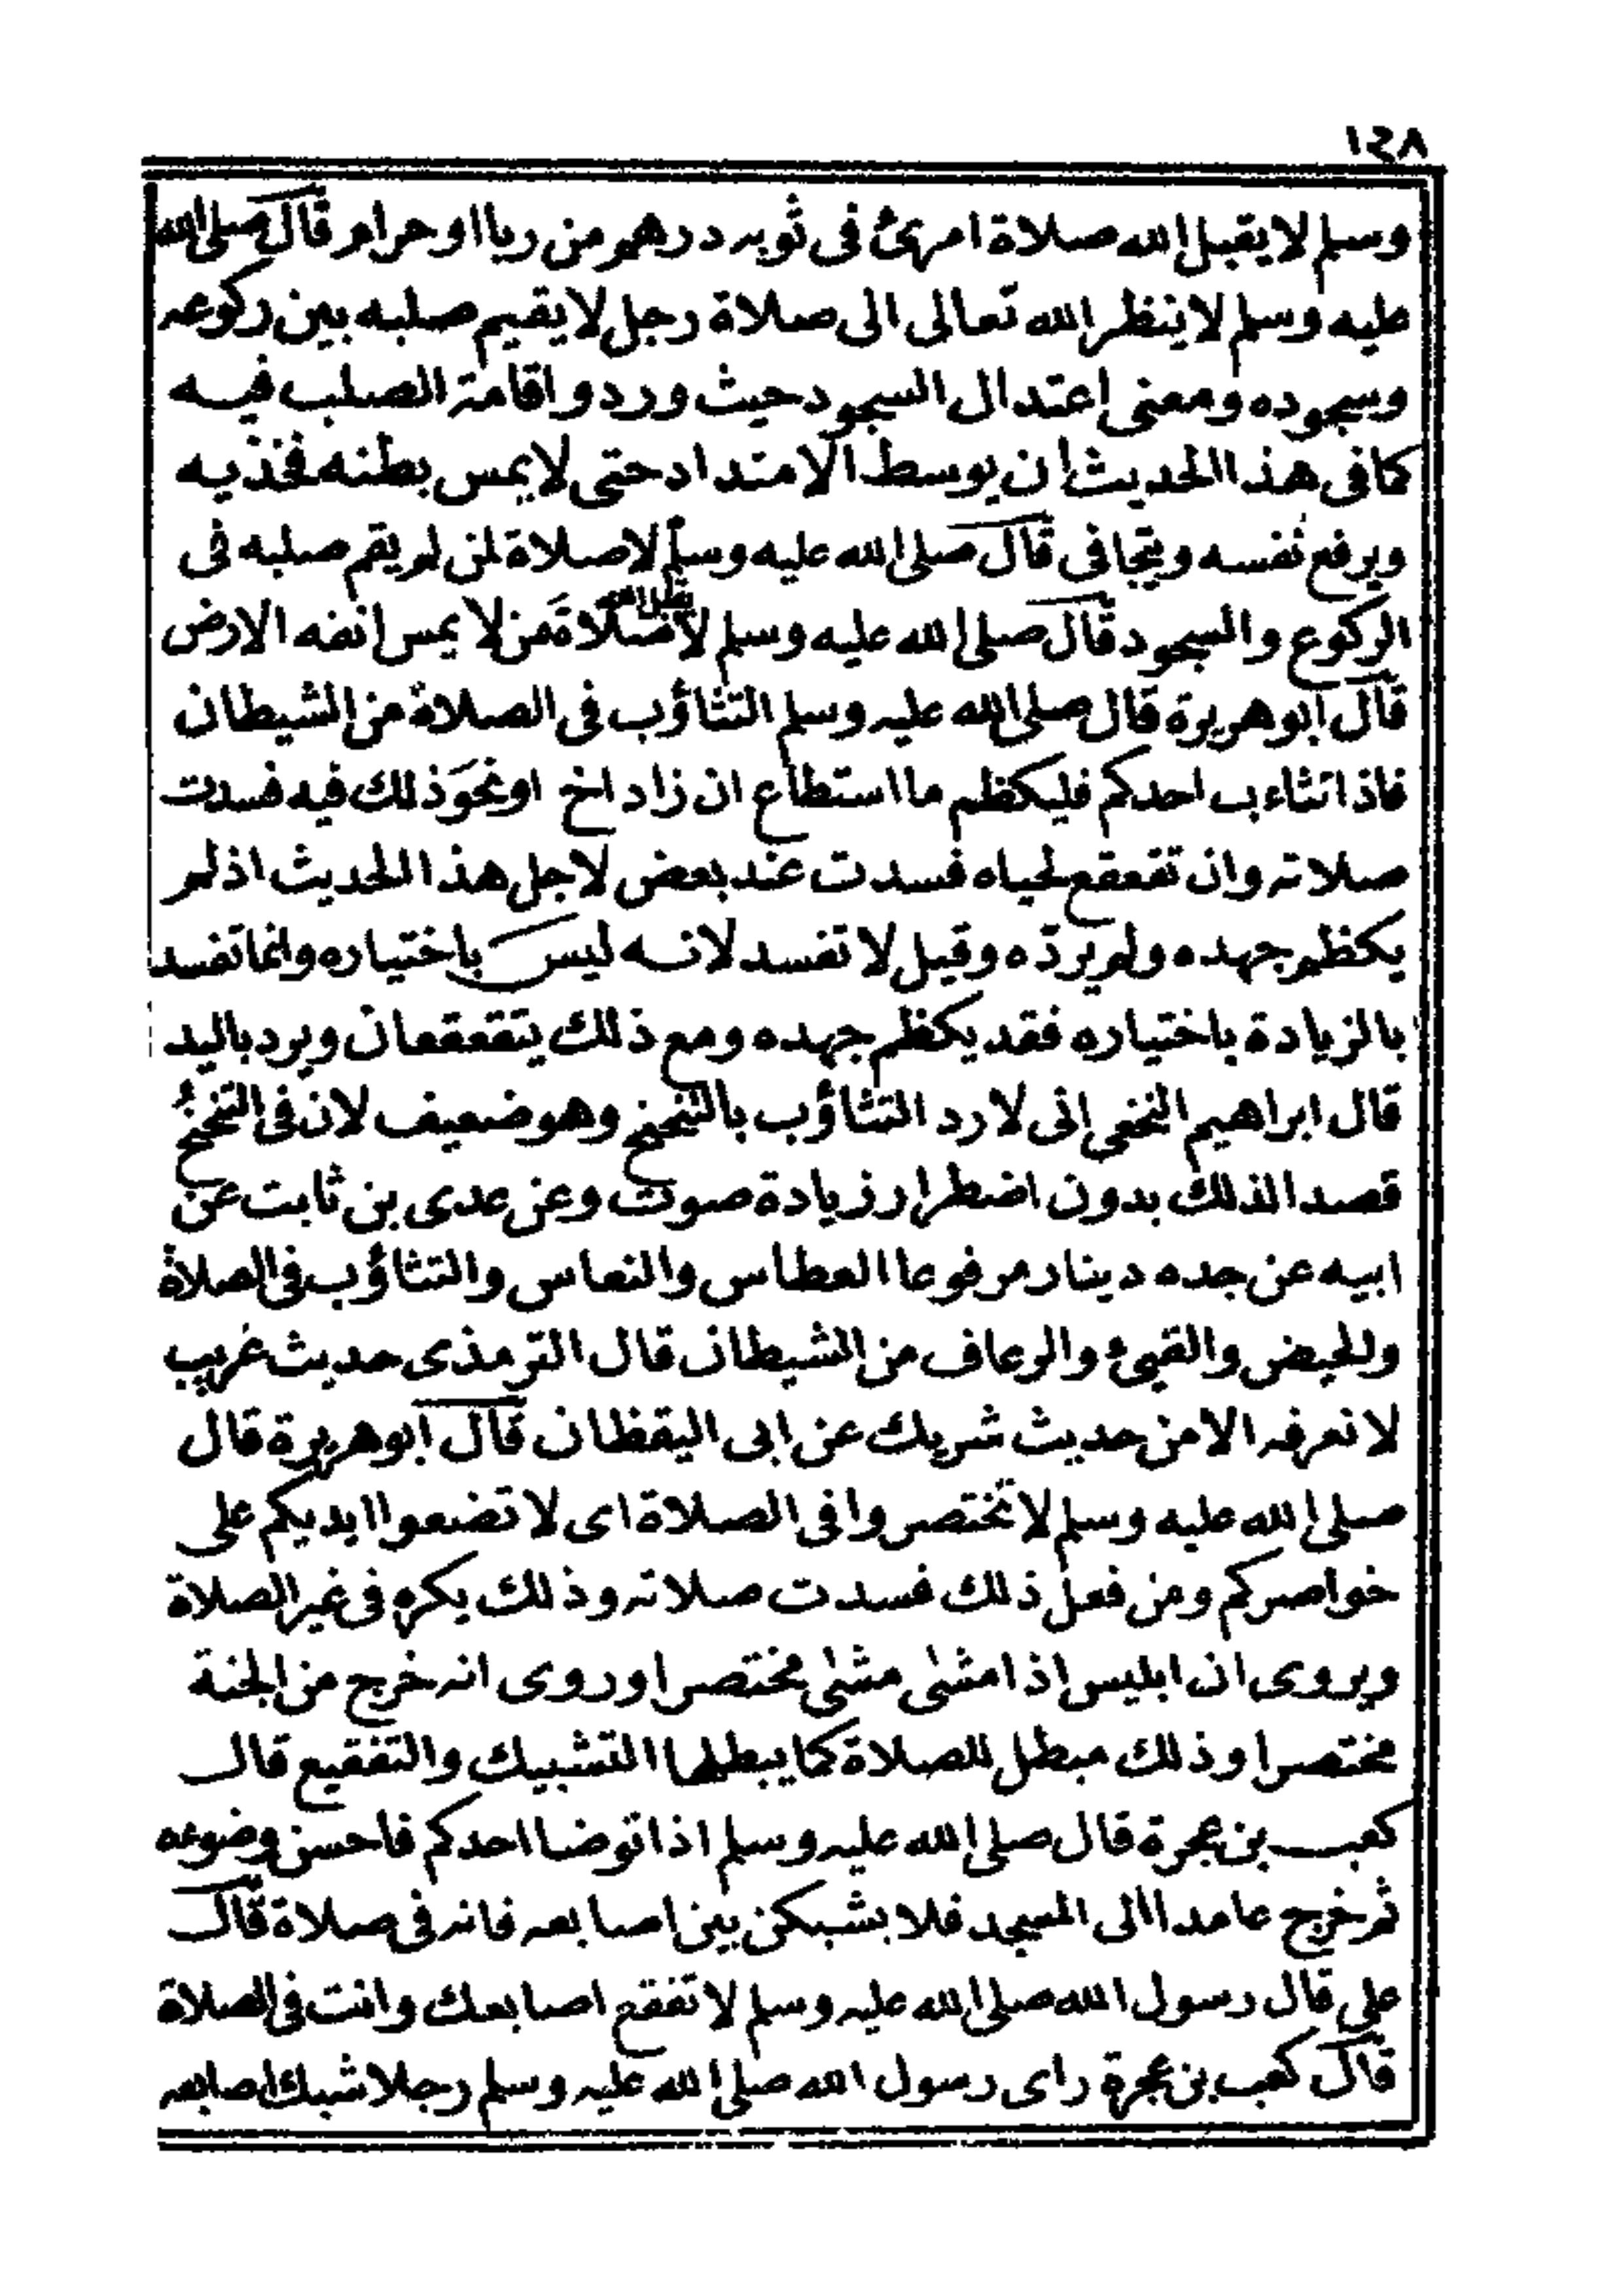 ١٤٨
وسلم لا يقبل الله صلاة امرئ فى ثوبه درهم من ربا او حرام قال صلى الله
عليه وسلم لا ينظر الله تعالى الى صلاة رجل لا يقيم صلبه بين ركوعه
وسجوده ومعنى اعتدال السجود حيث ورد واقامة الصلب فيه
كما فى هذا الحديث ان يوسط الامتداد حتى لا يمس بطنه فخذيه
ويرفع نفسه ويتجافى قال صلى الله عليه وسلم لا صلاة لمن لم يقم صلبه فى
الركوع والسجود قال صلى الله عليه وسلم لا صلاة من لا يمس انفه الارض
قال ابو هريرة قال صلى الله عليه وسلم التثاؤب فى الصلاة من الشيطان
فاذا تثاءب احدكم فليكظم ما استطاع ان زاد اخ او نحو ذلك فيه فسدت
صلاته وان تقعقع لحياه فسدت عند بعض لاجل هذا الحديث اذ لم
يكظم جهده ولم يرده وقيل لا تفسد لانه ليس باختياره وانما تفسد
بالزيادة باختياره فقد يكظم جهده ومع ذلك يتقعقعان ويرد باليد
قال ابراهيم النخعى انى لارد التثاؤب بالتنخنح وهو ضعيف لان فى التنخنح
قصدا لذلك بدون اضطرار زيادة صوت وعن عدى بن ثابت عن
ابيه عن جده دينار مرفوعا العطاس والنعاس والتثاؤب فى الصلاة
والحيض والقيئ والرعاف من الشيطان قال الترمذى حديث غريب
لا نعرفه الا من حديث شريك عن ابى اليقظان قال ابو هريرة قال
صلى الله عليه وسلم لا تختصروا فى الصلاة اى لا تضعوا ايديكم على
خواصركم ومن فعل ذلك فسدت صلاته وذلك يكره فى غير الصلاة
ويروى ان ابليس اذا مشى مشى مختصرا وروى انه خرج من الجنة
مختصرا وذلك مبطل للصلاة كما يبطلها التشبيك والتفقيع قال
كعب بن عجرة قال صلى الله عليه وسلم اذا توضا احدكم فاحسن وضوءه
ثم خرج عامدا الى المسجد فلا يشبكن بين اصابعه فانه فى صلاة قال
على قال رسول الله صلى الله عليه وسلم لا تفقع اصابعك وانت فى الصلاة
قال كعب بن عجرة راى رسول الله صلى الله عليه وسلم رجلا شبك اصابعه